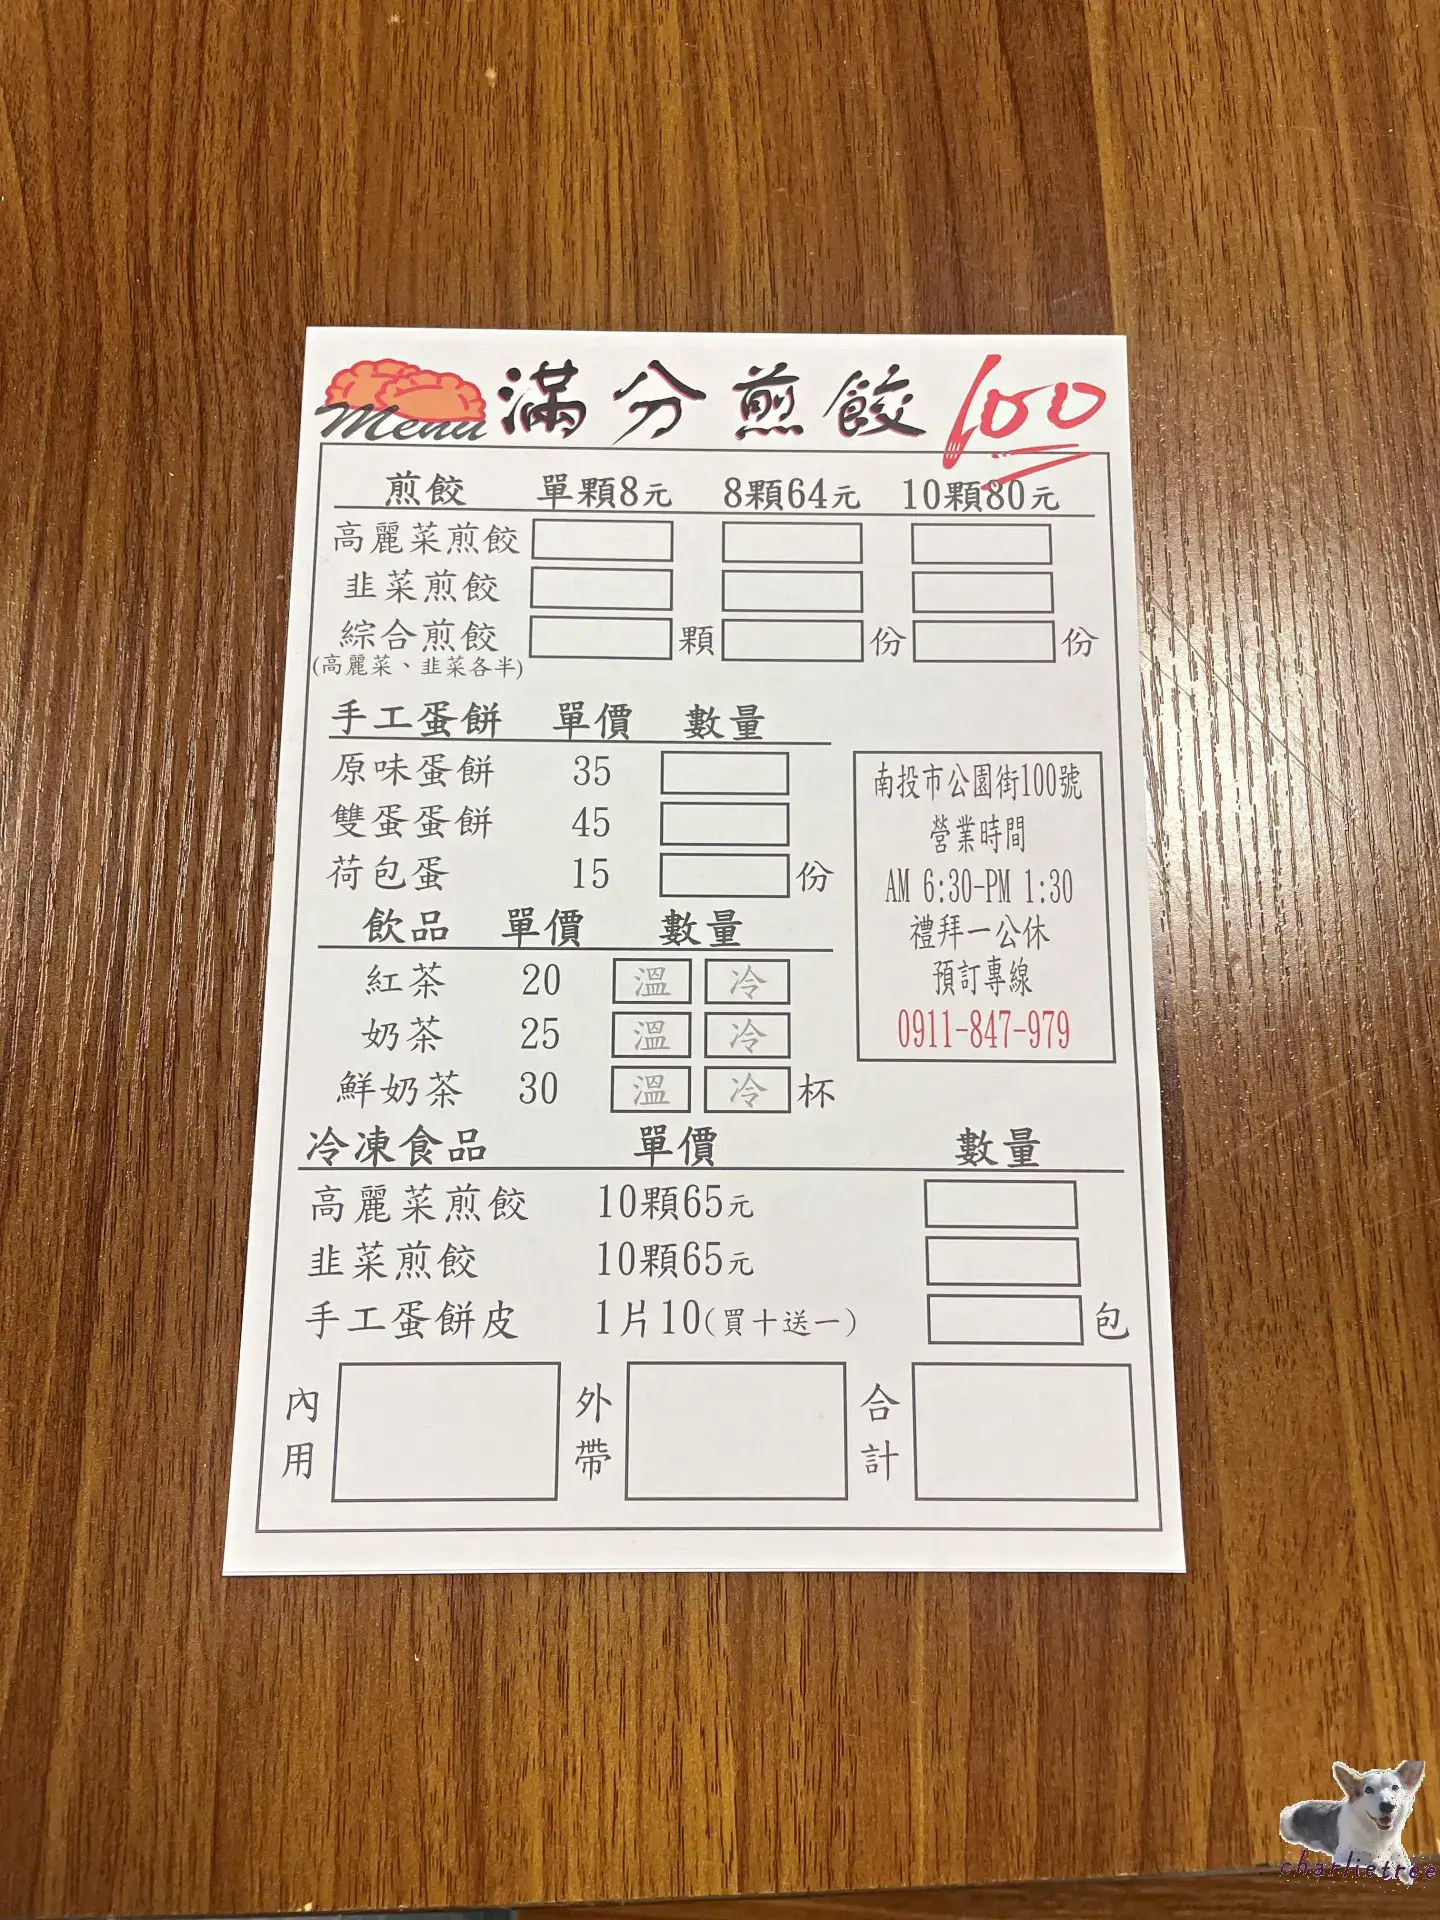 Menu 滿分煎餃 100
煎餃 單顆8元 8顆64元 10顆80元
高麗菜煎餃
韭菜煎餃
綜合煎餃 顆 份 份
(高麗菜、韭菜各半)
手工蛋餅 單價 數量
原味蛋餅 35
雙蛋蛋餅 45
荷包蛋 15 份
飲品 單價 數量
紅茶 20 溫 冷
奶茶 25 溫 冷
鮮奶茶 30 溫 冷 杯
南投市公園街100號
營業時間
AM 6:30-PM 1:30
禮拜一公休
預訂專線
0911-847-979
冷凍食品 單價 數量
高麗菜煎餃 10顆65元
韭菜煎餃 10顆65元
手工蛋餅皮 1片10(買十送一) 包
內用 外帶 合計
charlietree